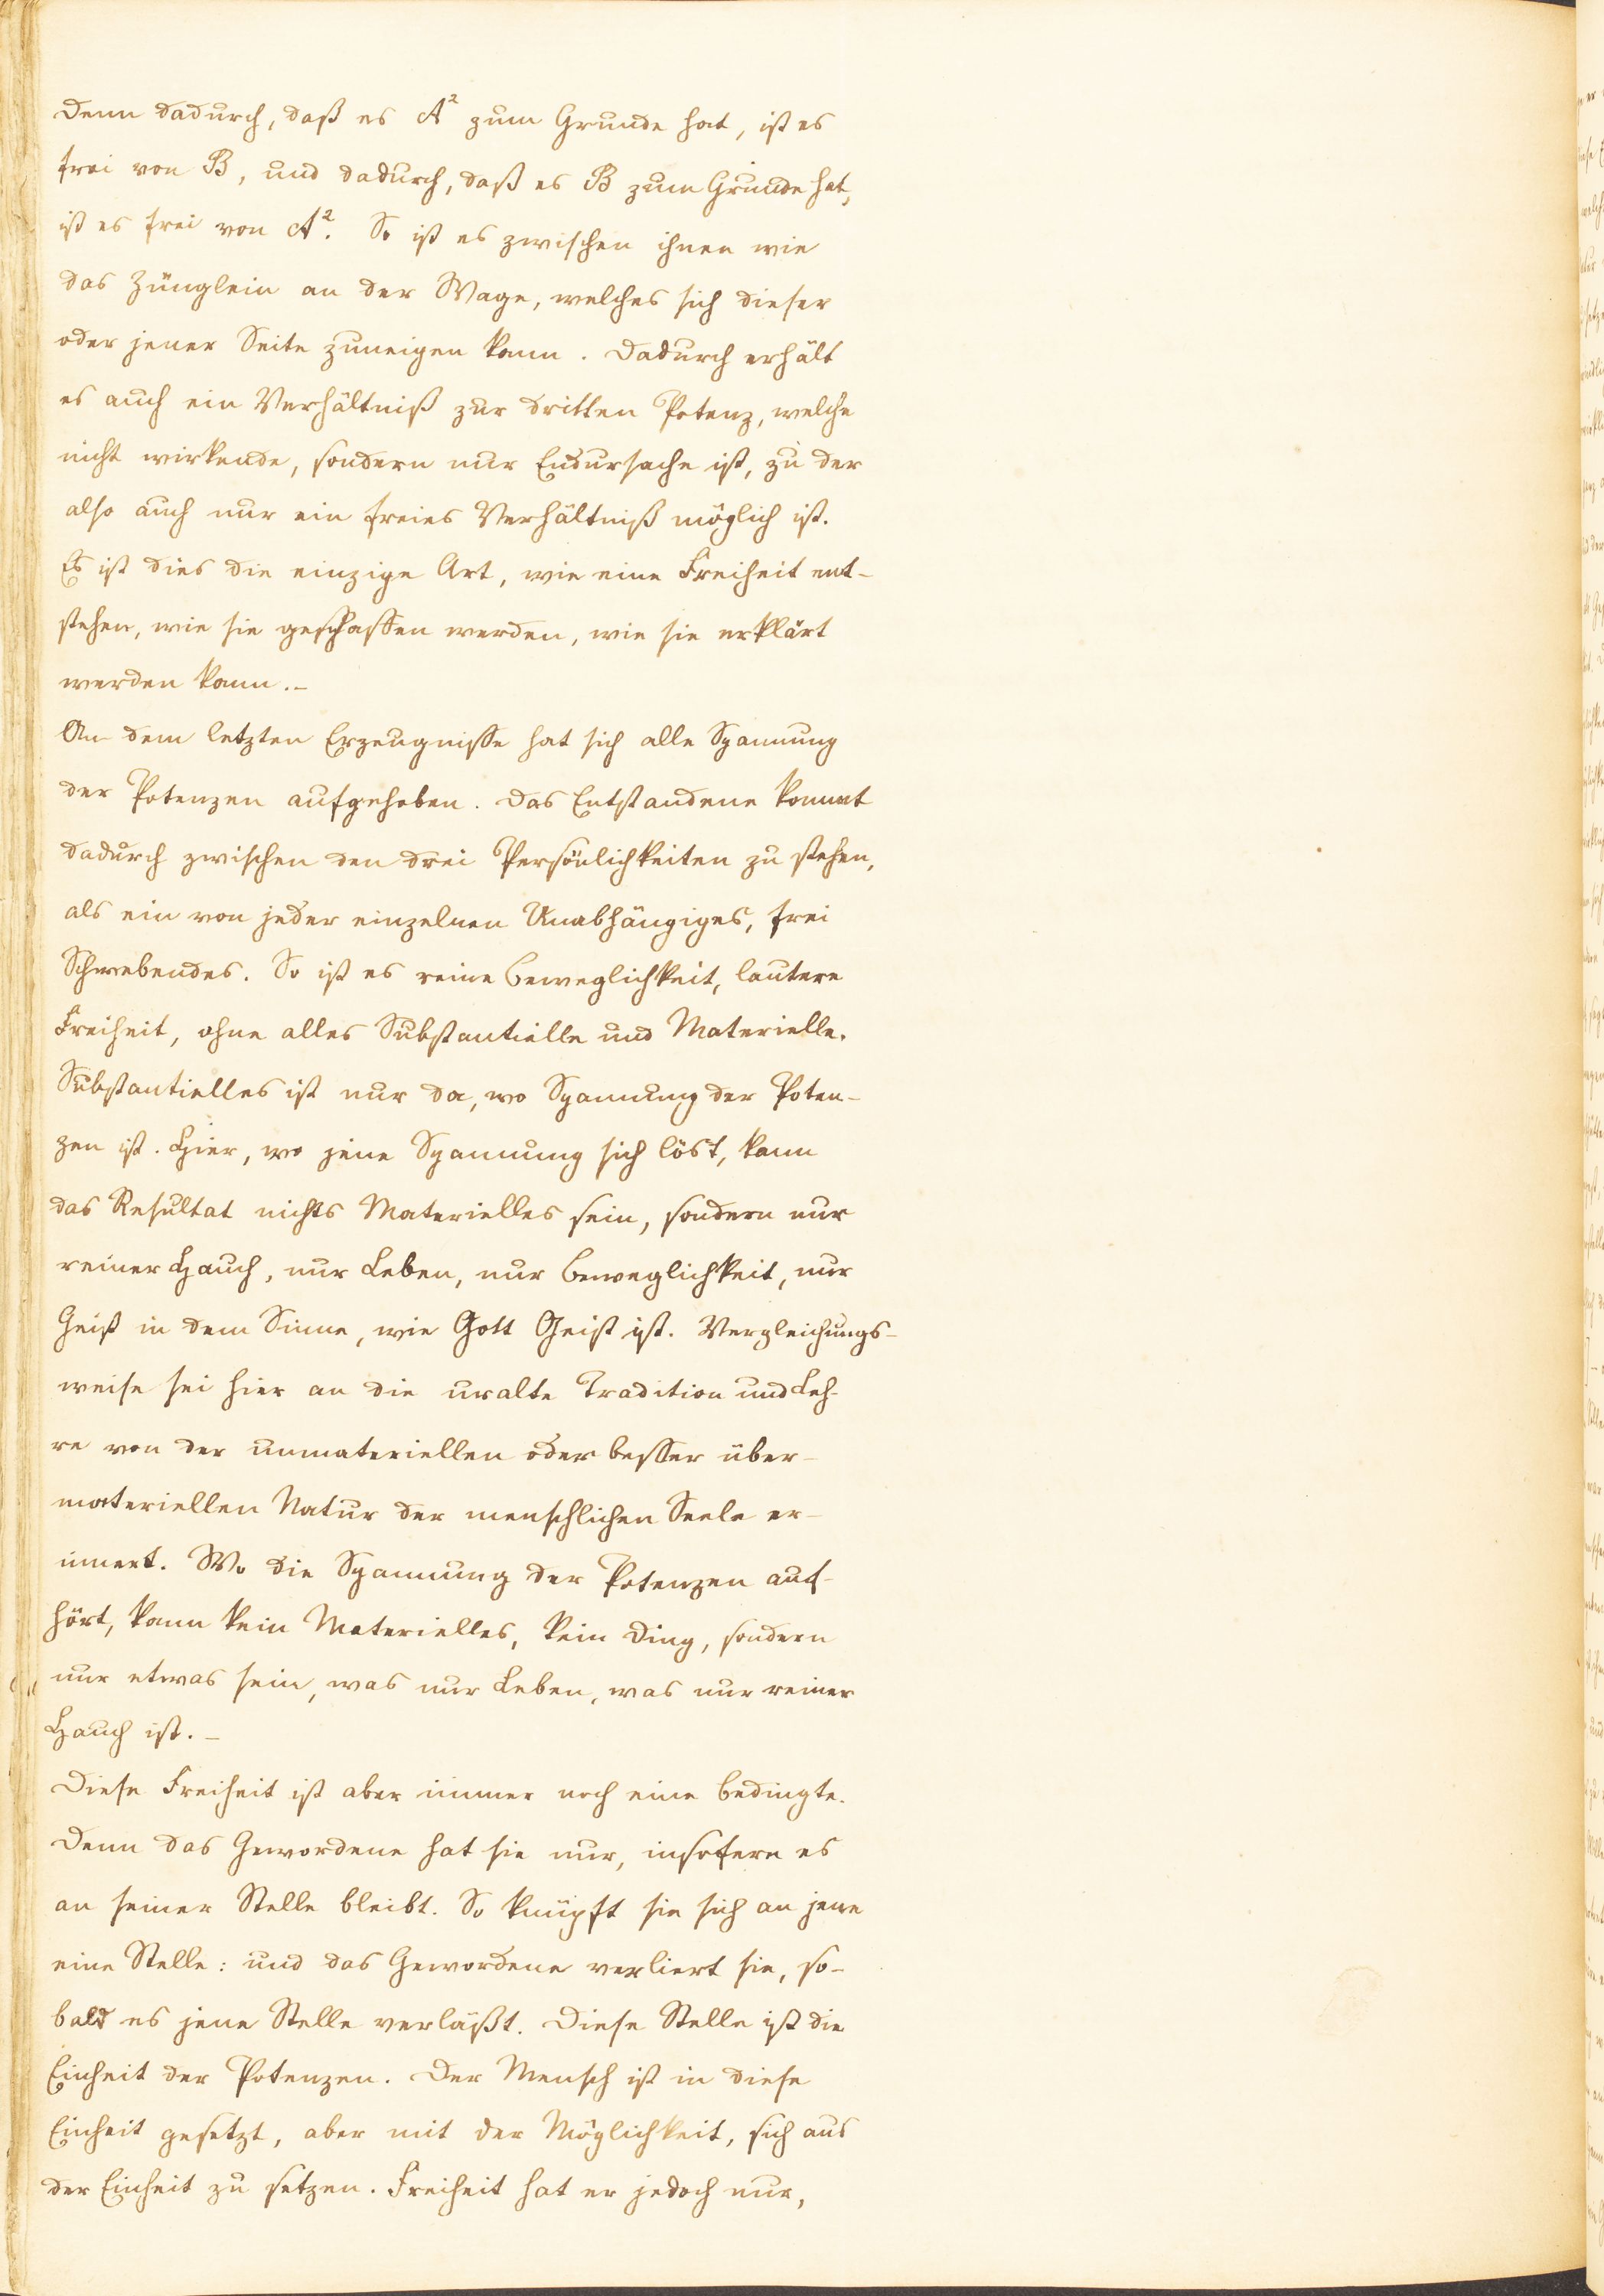 Denn dadurch, daß es A² zum Grunde hat, ist es
frei von B, und dadurch, daß es B zum Grunde hat,
ist es frei von A². So ist es zwischen ihnen wie
das Zünglein an der Wage, welches sich dieser
oder jener Seite zuneigen kann. Dadurch erhält
es auch ein Verhältniß zur dritten Potenz, welche
nicht wirkende, sondern nur Endursache ist, zu der
also auch nur ein freies Verhältniß möglich ist.
Es ist dies die einzige Art, wie eine Freiheit ent-
stehen, wie sie geschaffen werden, wie sie erklärt
werden kann. –
An dem letzten Erzeugnisse hat sich alle Spannung
der Potenzen aufgehoben. Das Entstandene kommt
dadurch zwischen den drei Persönlichkeiten zu stehen,
als ein von jeder einzelnen Unabhängiges, frei
Schwebendes. So ist es reine Beweglichkeit, lautere
Freiheit, ohne alles Substantielle und Materielle.
Substantielles ist nur da, wo Spannung der Poten-
zen ist. Hier, wo jene Spannung sich löst, kann
das Resultat nichts Materielles sein, sondern nur
reiner Hauch, nur Leben, nur Beweglichkeit, nur
Geist in dem Sinne, wie Gott Geist ist. Vergleichungs-
weise sei hier an die uralte Tradition und Leh-
re von der unmateriellen oder besser über-
materiellen Natur der menschlichen Seele er-
innert. Wo die Spannung der Potenzen auf-
hört, kann kein Materielles, kein Ding, sondern
nur etwas sein, was nur Leben, was nur reiner
Hauch ist. –
Diese Freiheit ist aber immer noch eine bedingte.
Denn das Gewordene hat sie nur, insofern es
an seiner Stelle bleibt. So knüpft sie sich an jene
eine Stelle: und das Gewordene verliert sie, so-
bald es jene Stelle verläßt. Diese Stelle ist die
Einheit der Potenzen. Der Mensch ist in diese
Einheit gesetzt, aber mit der Möglichkeit, sich aus
der Einheit zu setzen. Freiheit hat er jedoch nur,